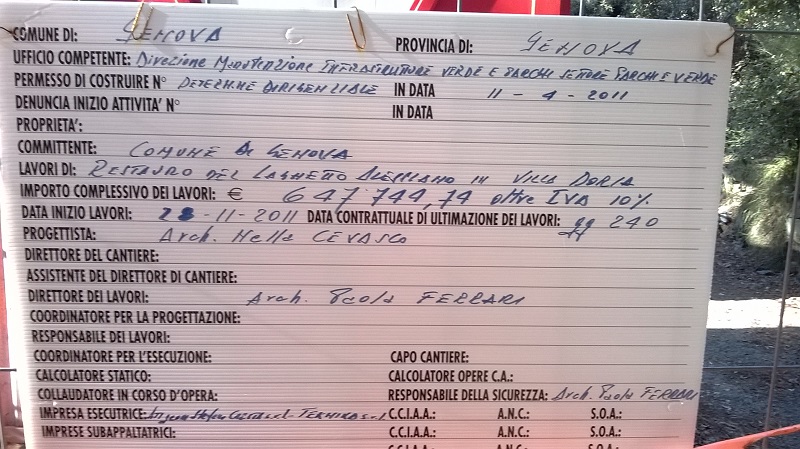 COMUNE DI: GENOVA PROVINCIA DI: GENOVA
UFFICIO COMPETENTE: DIREZIONE MANUTENZIONE INFRASTRUTTURE VERDE E PARCHI SETTORE PARCHI E VERDE
PERMESSO DI COSTRUIRE N° DETERMINE DIRIGENZIALE IN DATA 11-4-2011
DENUNCIA INIZIO ATTIVITA' N° IN DATA
PROPRIETA':
COMMITTENTE: COMUNE DI GENOVA
LAVORI DI: RESTAURO DEL LAGHETTO ALESSIANO IN VILLA DORIA
IMPORTO COMPLESSIVO DEI LAVORI: € 647744,74 oltre IVA 10%
DATA INIZIO LAVORI: 28-11-2011 DATA CONTRATTUALE DI ULTIMAZIONE DEI LAVORI: gg 240
PROGETTISTA: Arch. Nella CEVASCO
DIRETTORE DEL CANTIERE:
ASSISTENTE DEL DIRETTORE DI CANTIERE:
DIRETTORE DEI LAVORI: Arch. Paola FERRARI
COORDINATORE PER LA PROGETTAZIONE:
RESPONSABILE DEI LAVORI:
COORDINATORE PER L'ESECUZIONE: CAPO CANTIERE:
CALCOLATORE STATICO: CALCOLATORE OPERE C.A.:
COLLAUDATORE IN CORSO D'OPERA: RESPONSABILE DELLA SICUREZZA: Arch. Paola FERRARI
IMPRESA ESECUTRICE: C.C.I.A.A.: A.N.C.: S.O.A.:
IMPRESE SUBAPPALTATRICI: C.C.I.A.A.: A.N.C.: S.O.A.:
C.C.I.A.A.: A.N.C.: S.O.A.: